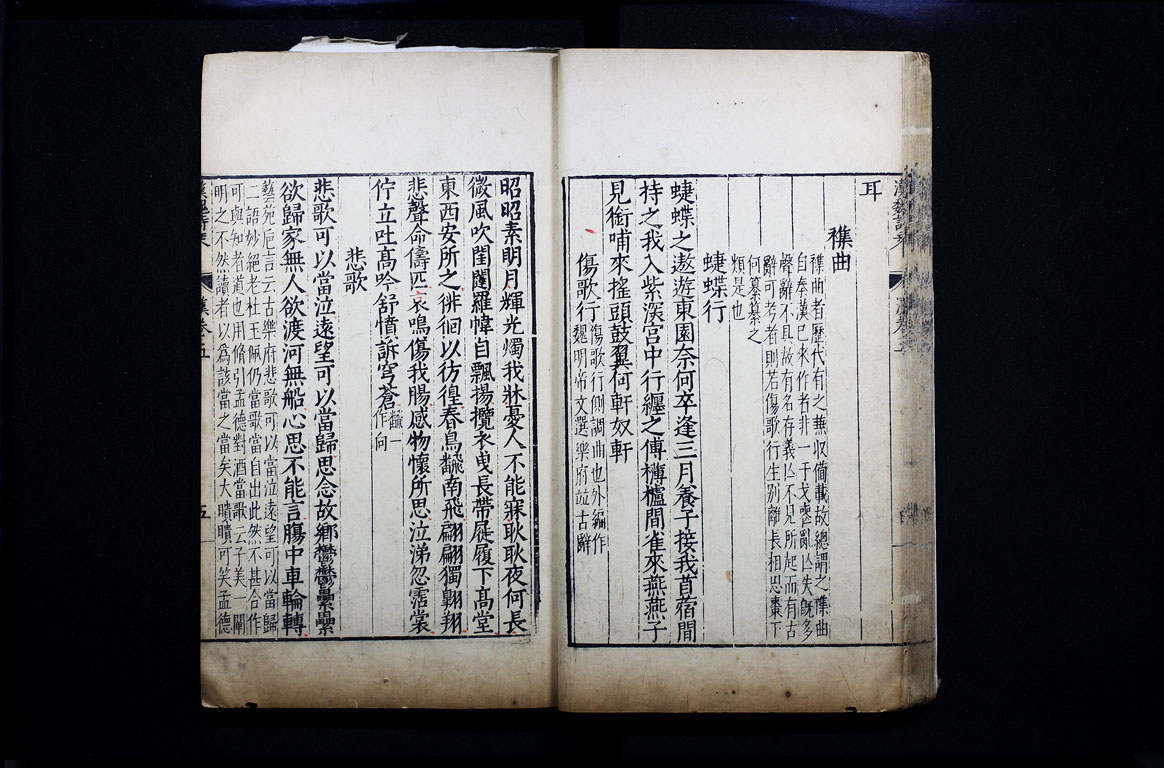 耳
襍曲
襍曲者歷代有之蕪收備載故總謂之襍曲
自秦漢已來作者非一干戈喪亂亾失旣多
聲辭不具故有名存義亾不見所起而有古
辭可考者則若傷歌行生別離長相思棗下
何纂纂之
類是也
蜨蝶行
蜨蝶之遨遊東園奈何卒逢三月養子接我苜蓿間
持之我入紫深宮中行纏之傅欂櫨間雀來燕燕子
見銜哺來搖頭鼓翼何軒奴軒
傷歌行
傷歌行側調曲也外編作
魏明帝文選樂府竝古辭
昭昭素明月輝光燭我牀憂人不能寐耿耿夜何長
微風吹閨闥羅幃自飄揚攬衣曳長帶屣履下高堂
東西安所之徘徊以彷徨春鳥飜南飛翩翩獨翺翔
悲聲命儔匹哀鳴傷我腸感物懷所思泣涕忽霑裳
佇立吐高吟舒憤訴穹蒼
飜一
作向
悲歌
悲歌可以當泣遠望可以當歸思念故鄉鬱鬱纍纍
欲歸家無人欲渡河無船心思不能言腸中車輪轉
藝苑巵言云古樂府悲歌可以當泣遠望可以當歸
二語妙絕老杜玉佩仍當歌當自出此然不甚合作
可與知者道也用脩引孟德對酒當歌云子美一闡
明之不然讀者以為該當之當矣大瞶瞶可笑孟德
漢卷五
五